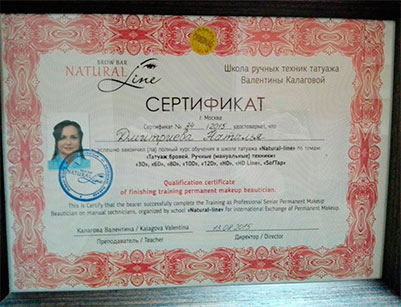 BROW BAR
NATURAL Line
Школа ручных техник татуажа
Валентины Калаговой
СЕРТИФИКАТ
г. Москва
Сертификат № 24 /2015 удостоверяет, что
Дмитриева Наталья
успешно закончил (ла) полный курс обучения в школе татуажа «Natural-line» по темам:
«Татуаж бровей. Ручные (мануальные) техники»
«3D», «6D», «8D», «10D», «12D», «HD», «HD Line», «SofTap»
Qualification certificate
of finishing training permanent makeup beautician.
This is Certify that the bearer successfully complete the Training as Professional Senior Permanent Makeup
Beautician on manual technicians, organized by school «Natural-line» for International Exchange of Permanent Makeup
Калагова Валентина / Kalagova Valentina
13.08.2015
Преподаватель / Teacher
Директор / Director